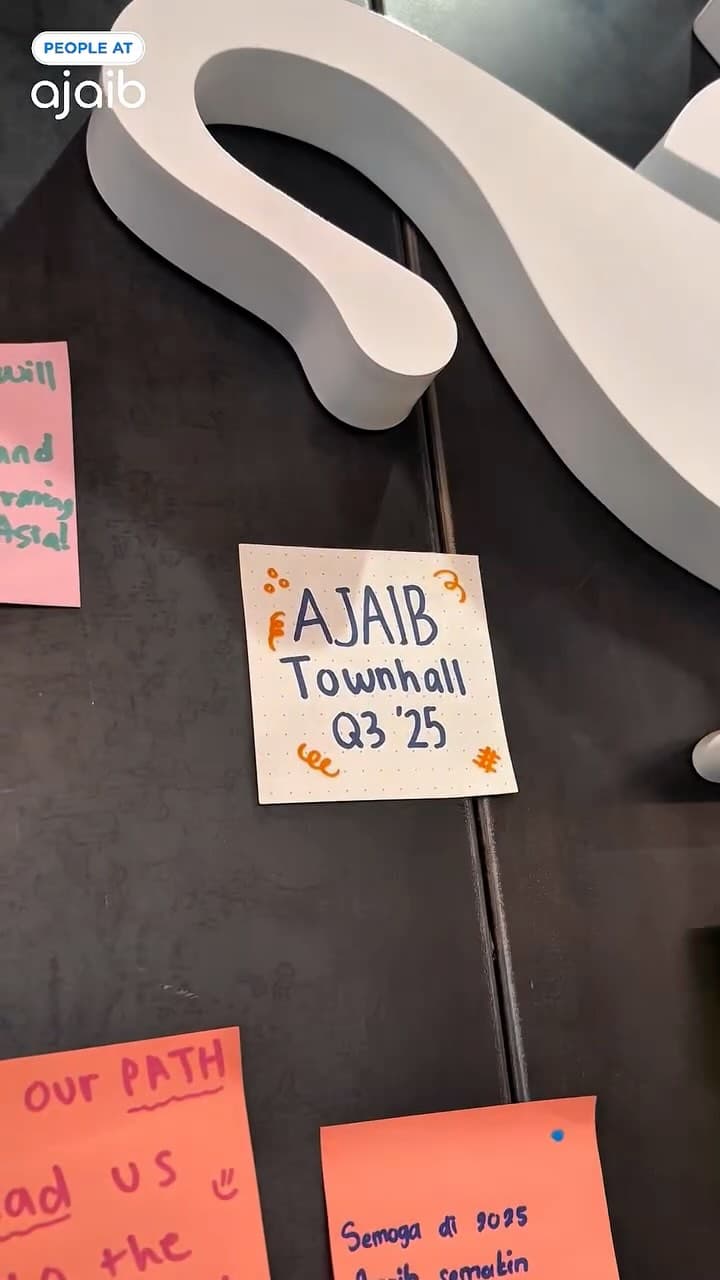 PEOPLE AT
ajaib
will
and
Asia!
AJAIB
Townhall
Q3 '25
our PATH
us
the
Semoga di 2025
semakin